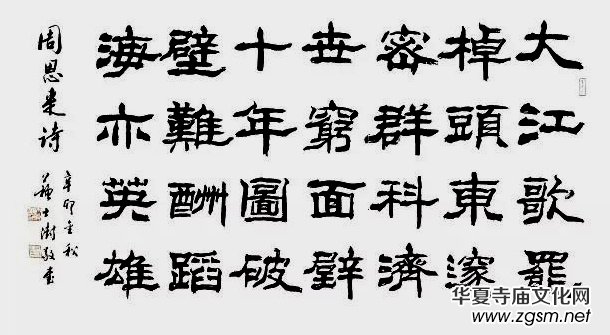 大江歌罷
棹頭東邃
密群科濟
世窮面壁
十年圖破
壁難酬蹈
海亦英雄
周恩来诗
辛卯金秋
蘇士澍敬書
华夏寺庙文化网
www.zgsm.net